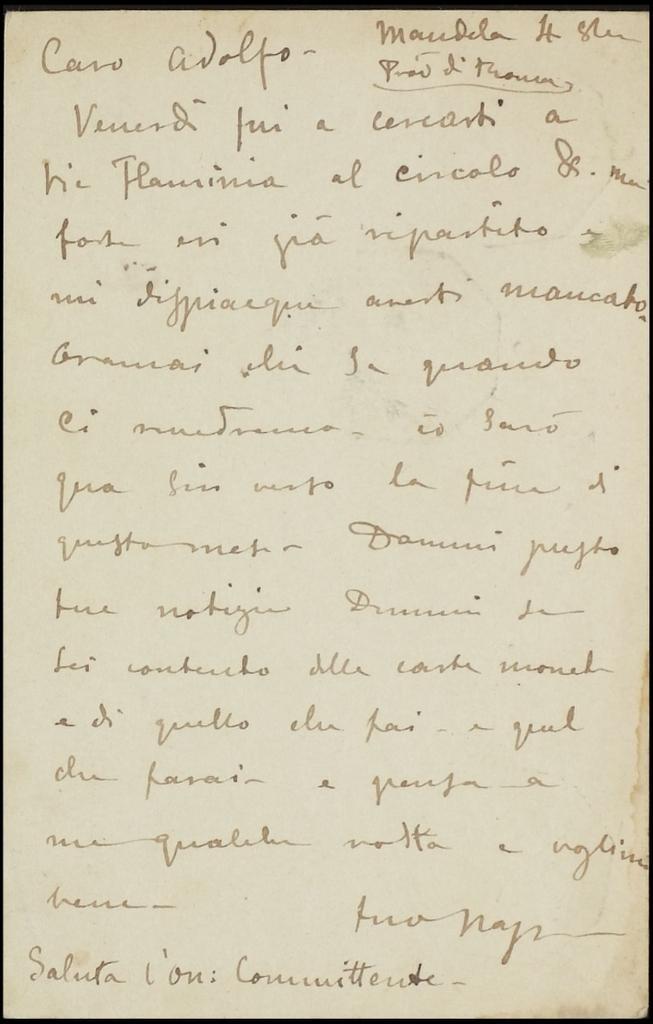 Mandela 4 8bre
Prov di Roma
Caro Adolfo -
Venerdì fui a cercarti a
Via Flaminia al circolo &. ma
forse eri già ripartito e
mi dispiacque averti mancato.
Oramai chi sa quando
ci rivedremo - io sarò
qua sin verso la fine di
questo mese - Dammi presto
tue notizie Dimmi se
sei contento delle carte monete
e di quello che fai - e quel
che farai - e pensa a
me qualche volta e voglimi
bene -
tuo
Saluta l'On: Committente -